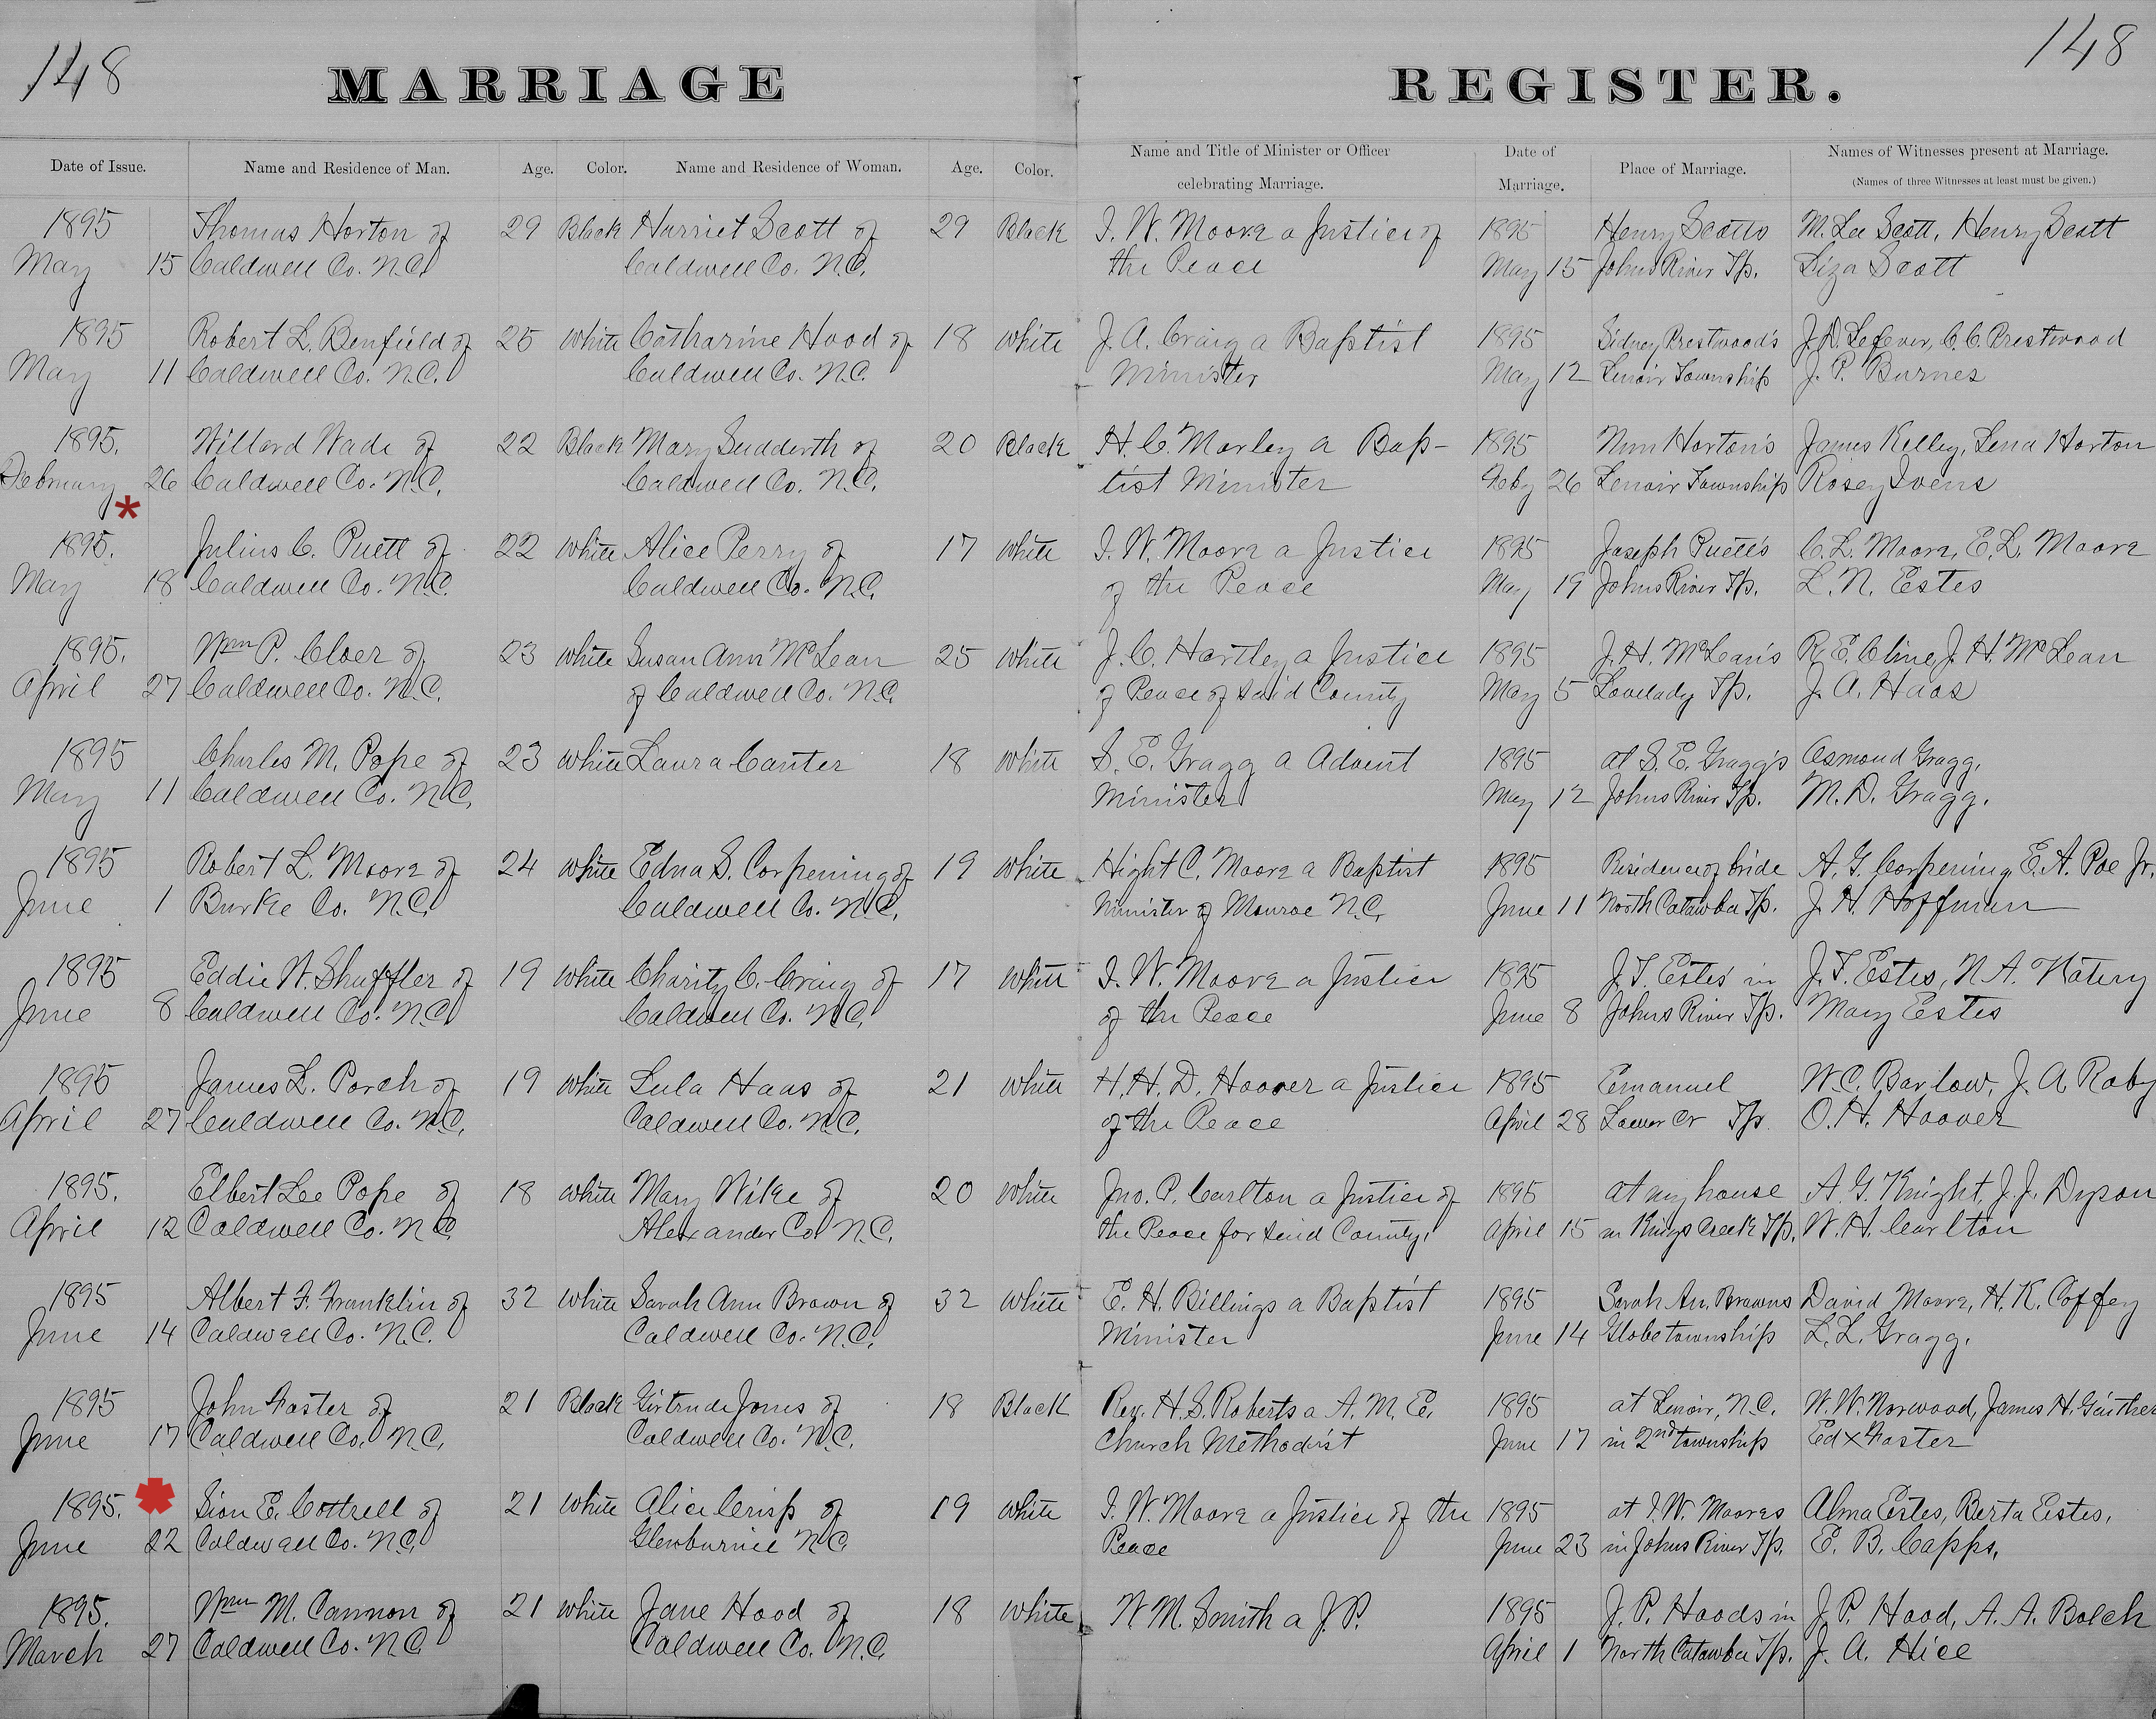 148
148
MARRIAGE REGISTER.
Date of Issue. Name and Residence of Man. Age. Color. Name and Residence of Woman. Age. Color. Name and Title of Minister or Officer celebrating Marriage. Date of Marriage. Place of Marriage. Names of Witnesses present at Marriage. (Names of three Witnesses at least must be given.)
1895 Thomas Horton of 29 Black Harriet Scott of 29 Black I. W. Moore a Justice of 1895 Henry Scotts M. Lee Scott, Henry Scott
May 15 Caldwell Co. N.C. Caldwell Co. N.C. the Peace May 15 Johns River Tp. Liza Scott
1895 Robert L. Benfield of 25 white Catharine Hood of 18 white J. A. Craig a Baptist 1895 Sidney Prestwood's J. D. Lefever, C. C. Prestwood
May 11 Caldwell Co. N.C. Caldwell Co. N.C. Minister May 12 Lenoir Township J. P. Burnes
1895. Willard Wade of 22 Black Mary Sudderth of 20 Black H. C. Morley a Bap- 1895 Horton's James Kelley, Lena Horton
February 26 Caldwell Co. N.C. Caldwell Co. N.C. tist Minister Feby 26 Lenoir Township Rosey Ivens
*
1895. Julius C. Puett of 22 white Alice Perry of 17 white I. W. Moore a Justice 1895 Joseph Puett's C. L. Moore, E. L. Moore
May 18 Caldwell Co. N.C. Caldwell Co. N.C. of the Peace May 19 Johns River Tp. L. N. Estes
1895. Wm P. Cloer of 23 white Susan Ann McLean 25 white J. C. Hartley a Justice 1895 J. H. McLean's R. E. Cline, J. H. McLean
April 27 Caldwell Co. N.C. of Caldwell Co. N.C. of Peace of said County May 5 Lovelady Tp. J. A. Haas
1895 Charles M. Pope of 23 white Laura Canter 18 white S. E. Gragg a Advent 1895 at S. E. Gragg's Osmond Gragg,
May 11 Caldwell Co. N.C. Minister May 12 Johns River Tp. M. D. Gragg.
1895 Robert L. Moore of 24 white Edna S. Corpening of 19 white Hight C. Moore a Baptist 1895 Residence of bride A. G. Corpening, E. A. Poe Jr.
June 1 Burke Co. N.C. Caldwell Co. N.C. Minister of Monroe N.C. June 11 North Catawba Tp. J. H. Hoffman
1895 Eddie W. Shuffler of 19 white Charity C. Craig of 17 white I. W. Moore a Justice 1895 J. T. Estes' in J. T. Estes, N. A.
June 8 Caldwell Co. N.C. Caldwell Co. N.C. of the Peace June 8 Johns River Tp. Mary Estes
1895 James L. Porch of 19 white Lula Haas of 21 white H. H. D. Hoover a Justice 1895 Emanuel W. C. Barlow, J. A. Roby
April 27 Caldwell Co. N.C. Caldwell Co. N.C. of the Peace April 28 Lower Cr Tp. O. H. Hoover
1895. Elbert Lee Pope of 18 white Mary Wike of 20 white Jno. P. Carlton a Justice of 1895 at my house A. G. Knight, J. J. Dyson
April 12 Caldwell Co. N.C. Alexander Co. N.C. the Peace for said County. April 15 in Kings Creek Tp. W. H. Carlton
1895 Albert F. Franklin of 32 white Sarah Ann Brown of 32 white E. H. Billings a Baptist 1895 Sarah An. Browns David Moore, H. K. Coffey
June 14 Caldwell Co. N.C. Caldwell Co. N.C. Minister June 14 Globe township L. L. Gragg.
1895 John Foster of 21 Black Girtrude Jones of 18 Black Rev. H. S. Roberts a A. M. E. 1895 at Lenoir, N.C. W. W. Norwood, James H. Gaither
June 17 Caldwell Co. N.C. Caldwell Co. N.C. Church Methodist June 17 in 2nd township Ed x Foster
1895. * Sion E. Cottrell of 21 white Alice Crisp of 19 white I. W. Moore a Justice of the 1895 at I. W. Moores Alma Estes, Berta Estes,
June 22 Caldwell Co. N.C. Glenburnie N.C. Peace June 23 in Johns River Tp. E. B. Capps,
1895. Wm M. Cannon of 21 white Jane Hood of 18 white W. M. Smith a J. P. 1895 J. P. Hoods in J. P. Hood, A. A. Bolch
March 27 Caldwell Co. N.C. Caldwell Co. N.C. April 1 North Catawba Tp. J. A. Hice